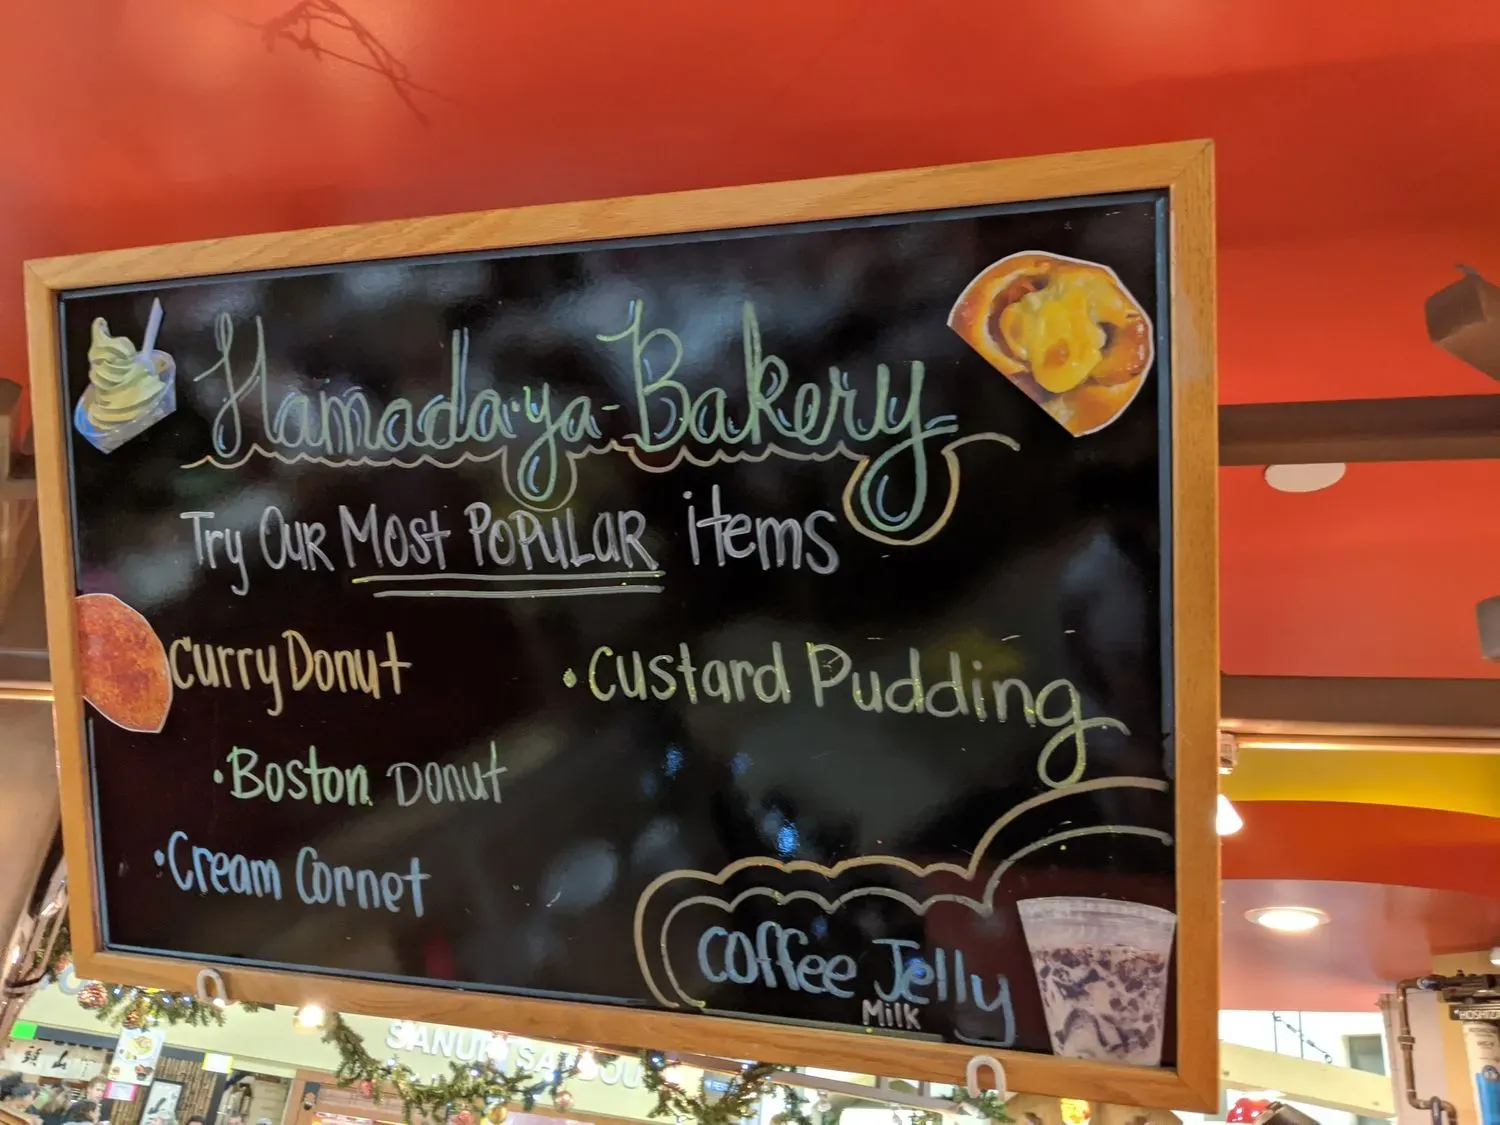 Hamada-ya-Bakery
Try Our Most Popular items
Curry Donut
• Custard Pudding
• Boston Donut
• Cream Cornet
Coffee Jelly
Milk
SANUKI SANDOU